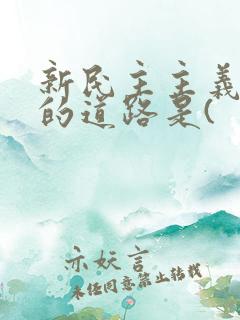 新民主主義
的道路是(
亦妖言
未经同意禁止转载